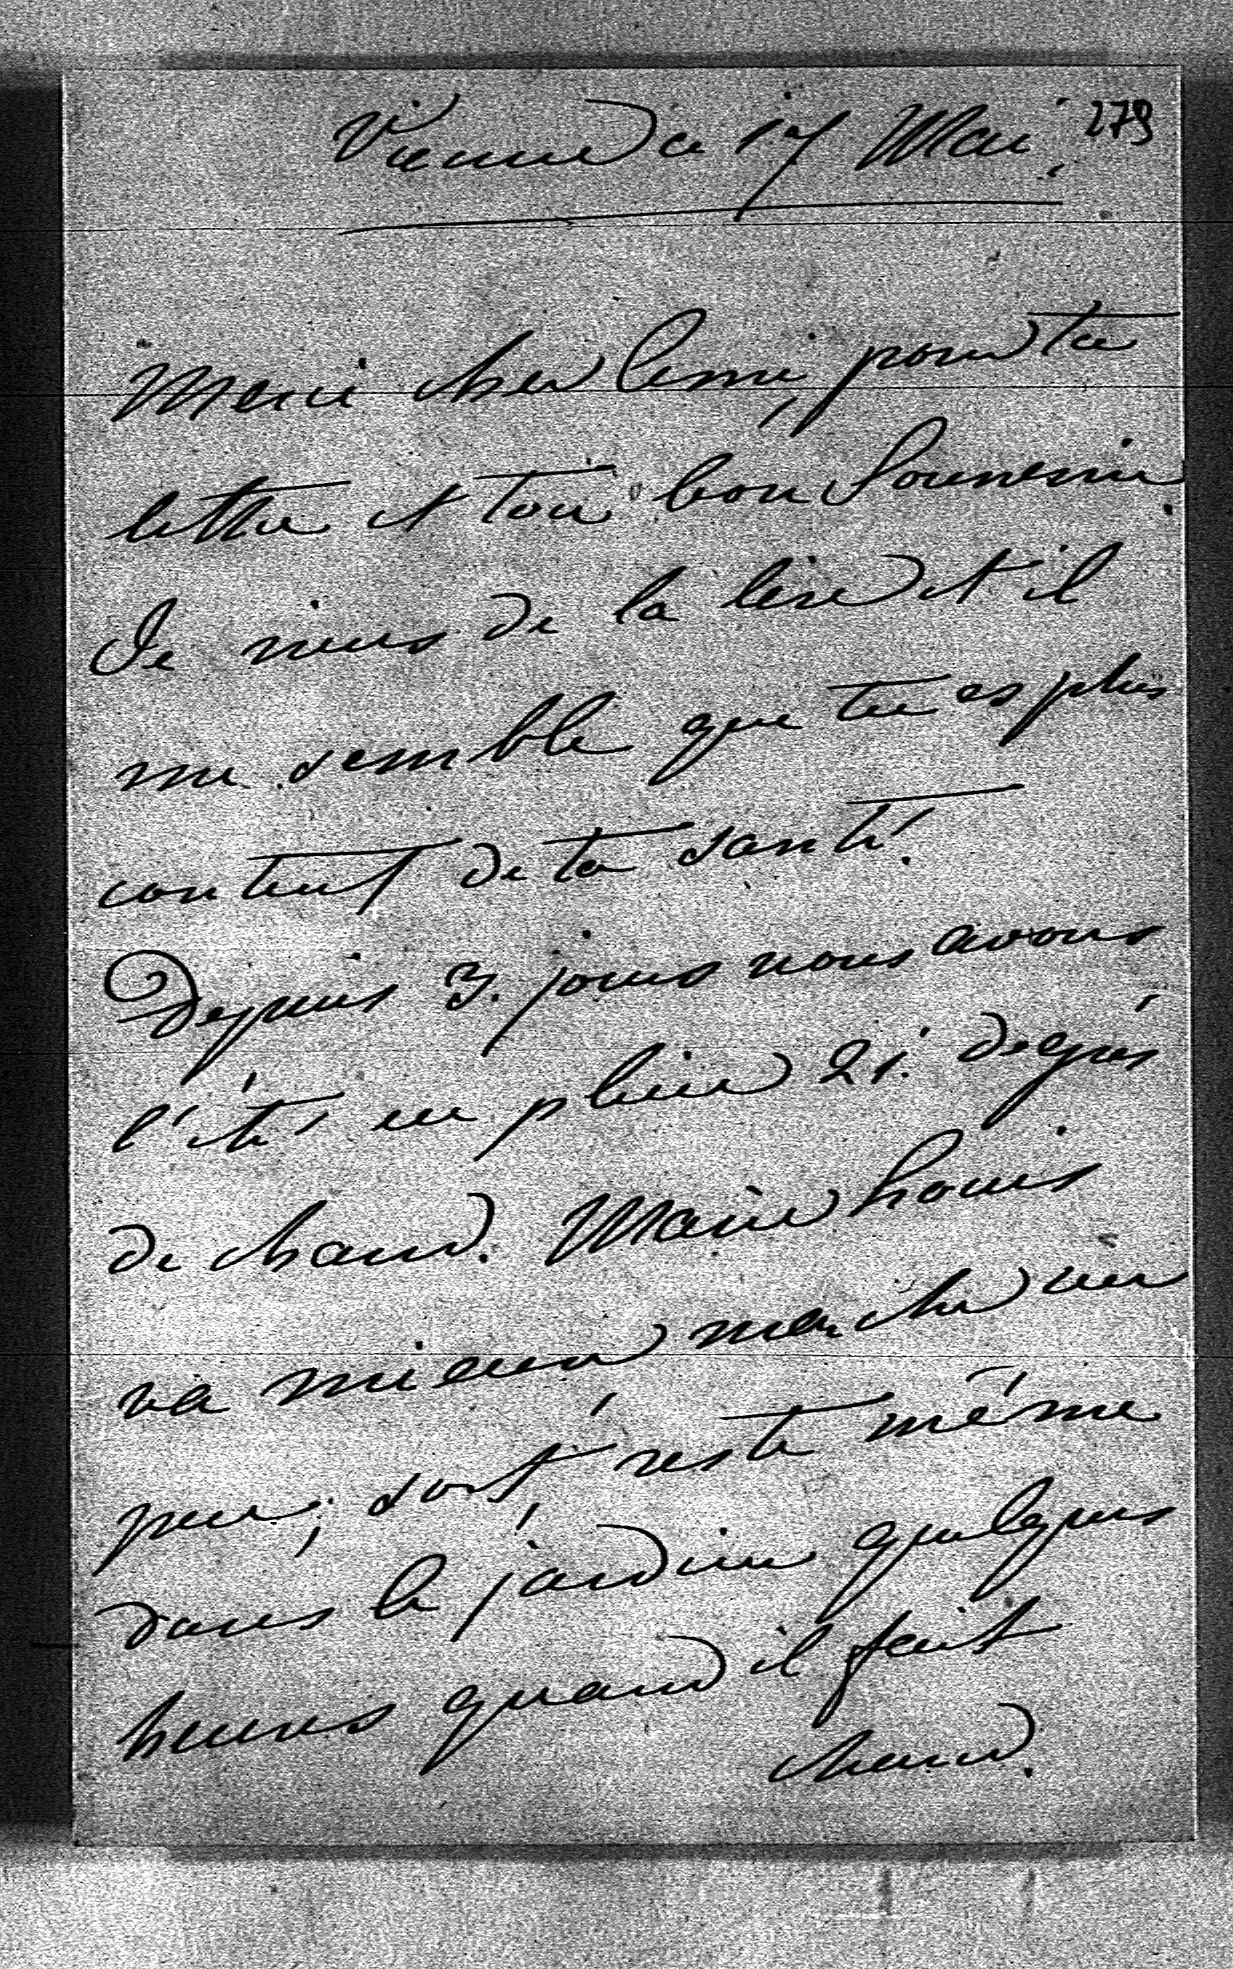 Vienne ce 17 Mai. 279
Merci cher Ami, pour ta
lettre et ton bon Souvenir.
Je viens de la lire et il
me semble que tu es plus
content de ta santé.
Depuis 3. jours nous avons
l'été en plein 21. degrés
de chaud. Marie Louis
va mieux marche un
peu, sort, reste même
dans le jardin quelques
heures quand il fait
chaud.